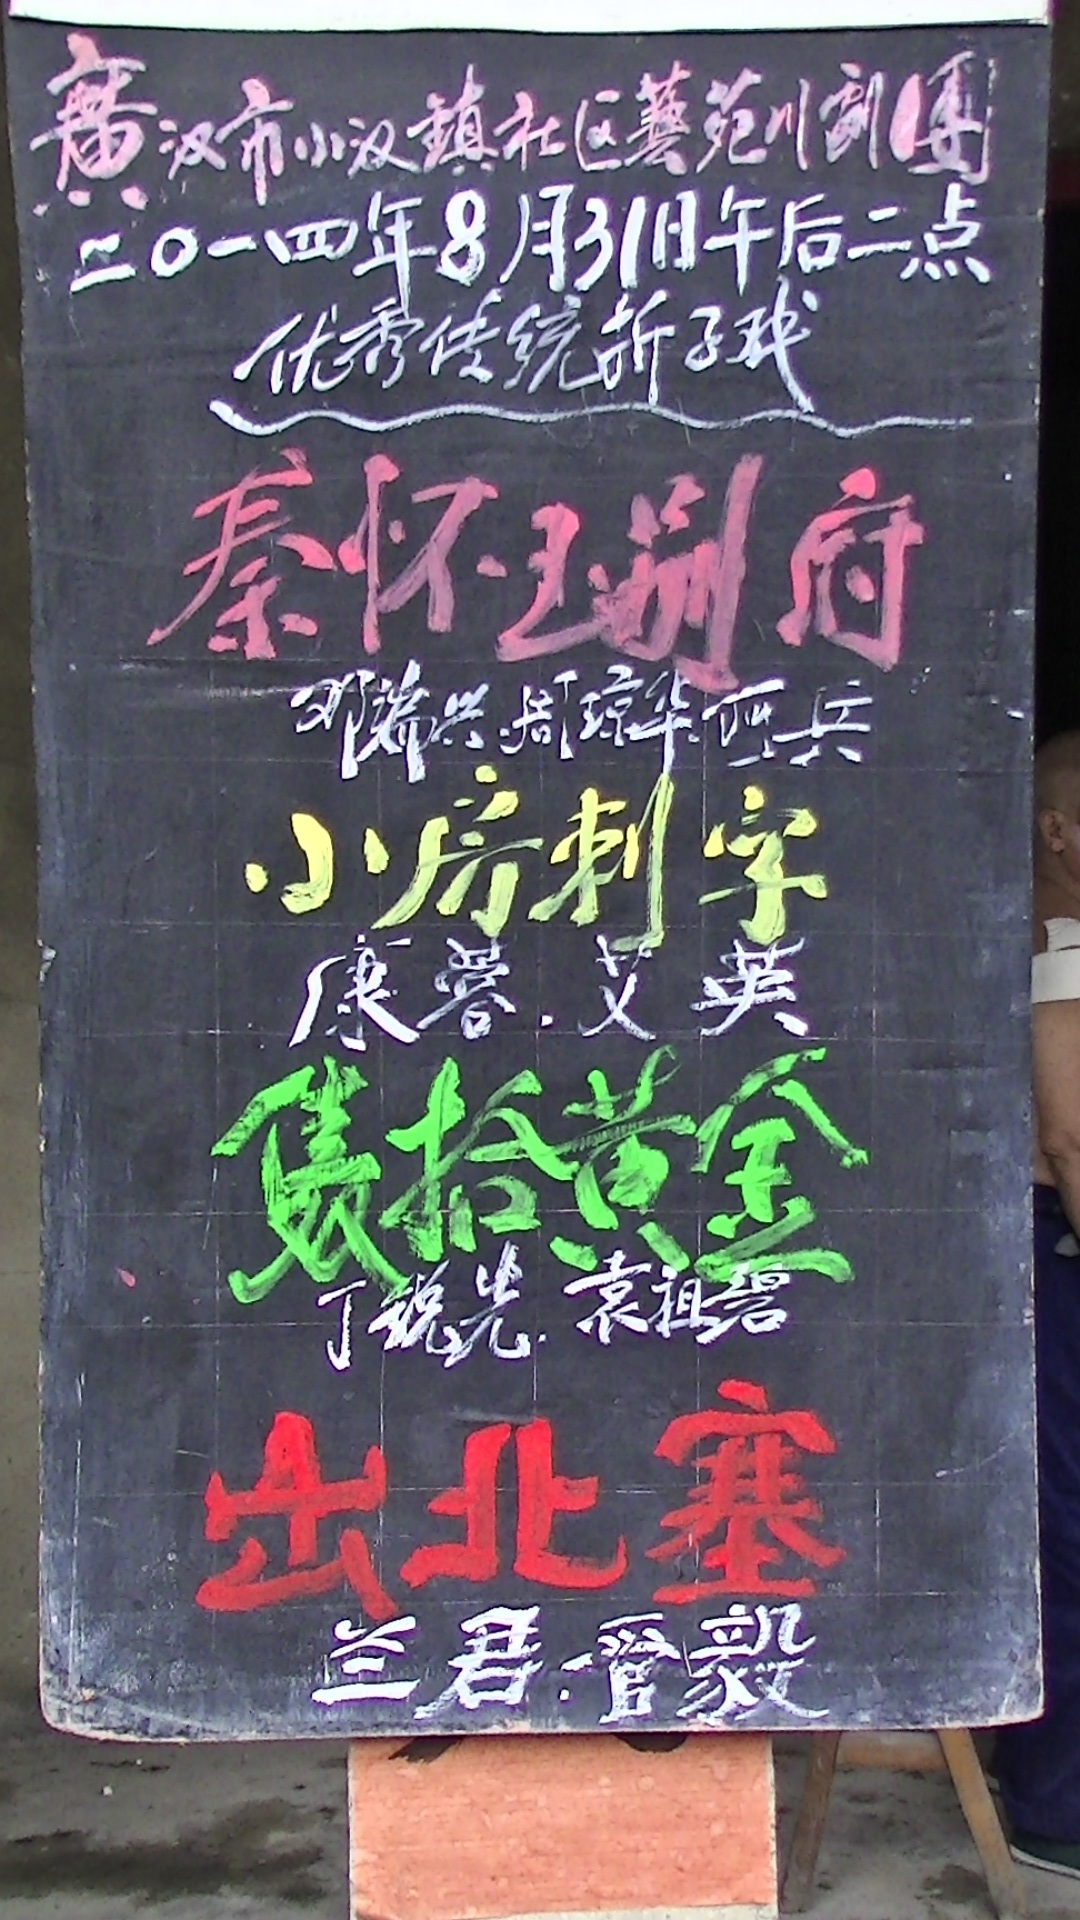 廣汉市小汉鎮社区藝苑川劇團
二〇一四年8月31日午后二点
优秀传统折子戏
秦怀玉剐府
邓瑞兴.周琼华.阿兵
小房刺字
康蓉.艾英
拾黄金
丁锐光.袁祖碧
出北塞
兰君.晋毅